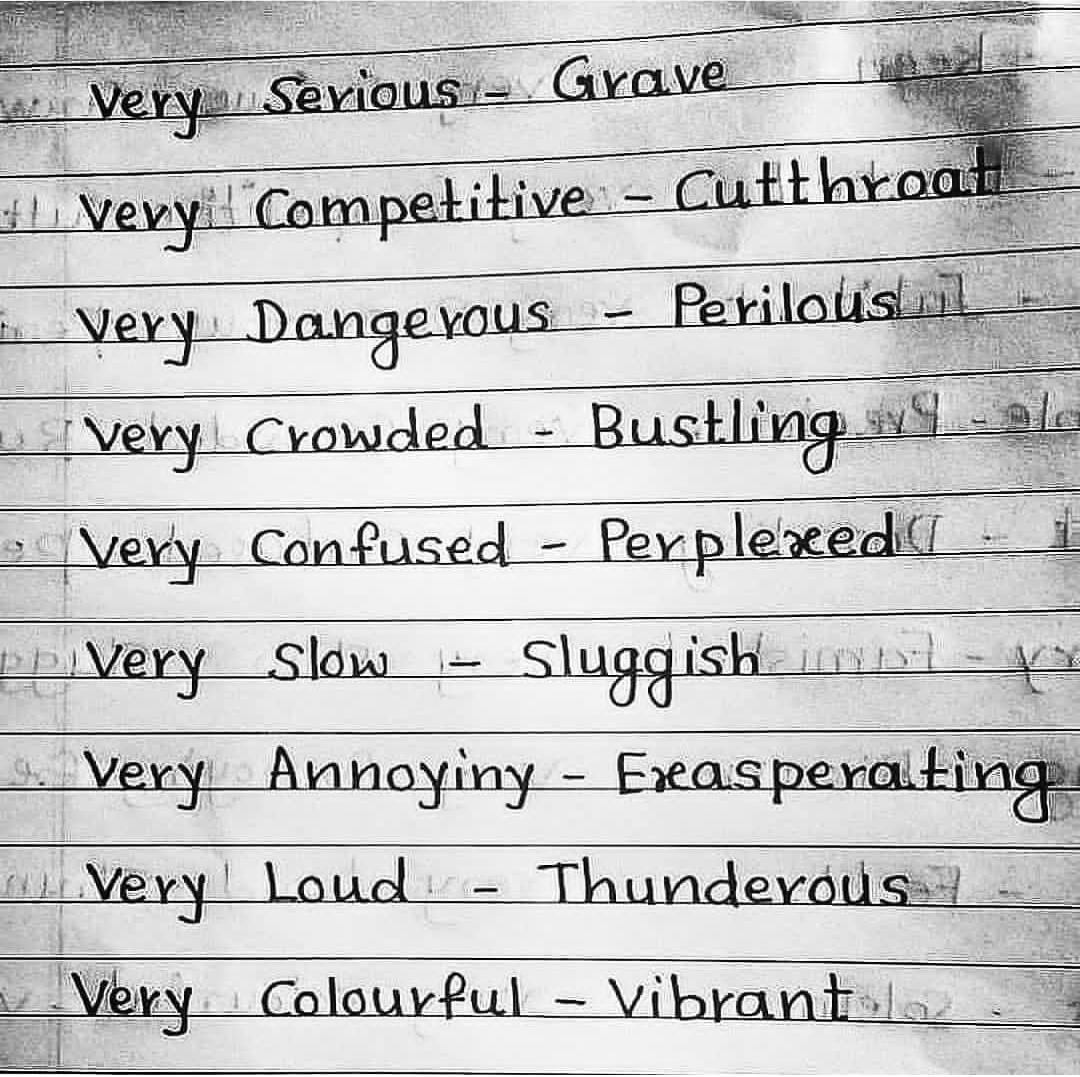 Very Serious - Grave
Very Competitive - Cutthroat
Very Dangerous - Perilous
Very Crowded - Bustling
Very Confused - Perplexed
Very Slow - Sluggish
Very Annoyiny - Exasperating
Very Loud - Thunderous
Very Colourful - Vibrant